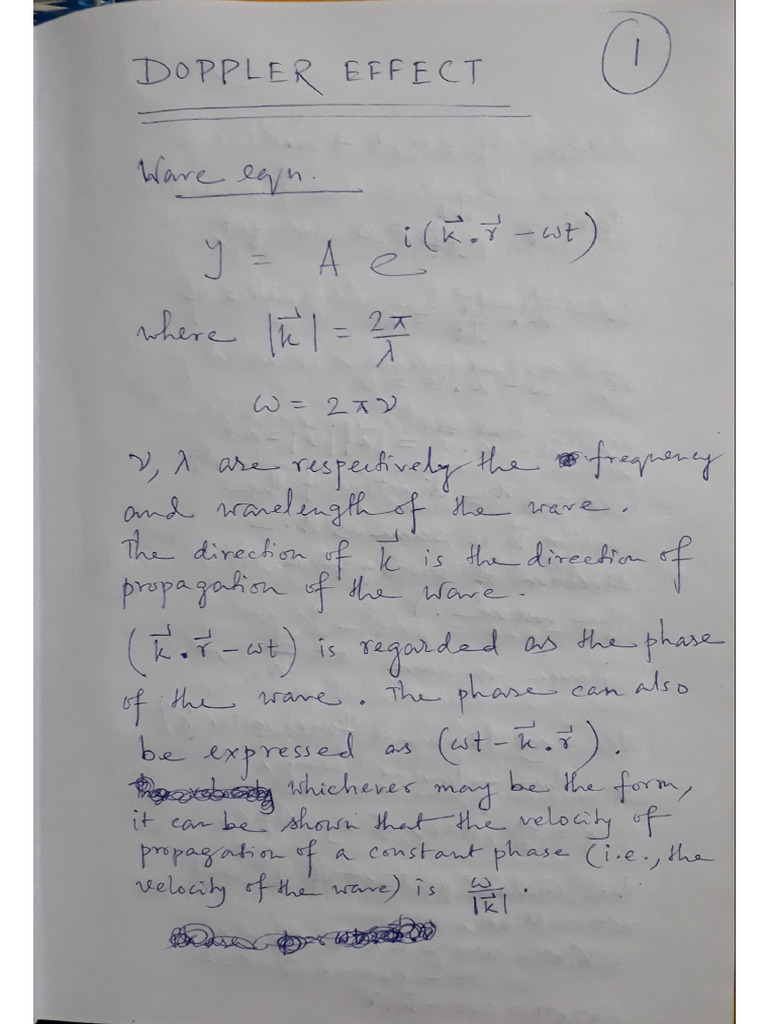 DOPPLER EFFECT
1
Wave eqn.
y = A e^{i(\vec{k}.\vec{r} - ωt)}
where |\vec{k}| = 2π/λ
ω = 2πν
ν, λ are respectively the frequency
and wavelength of the wave.
The direction of \vec{k} is the direction of
propagation of the wave.
(\vec{k}.\vec{r} - ωt) is regarded as the phase
of the wave. The phase can also
be expressed as (ωt - \vec{k}.\vec{r}).
whichever may be the form,
it can be shown that the velocity of
propagation of a constant phase (i.e., the
velocity of the wave) is ω/|\vec{k}|.